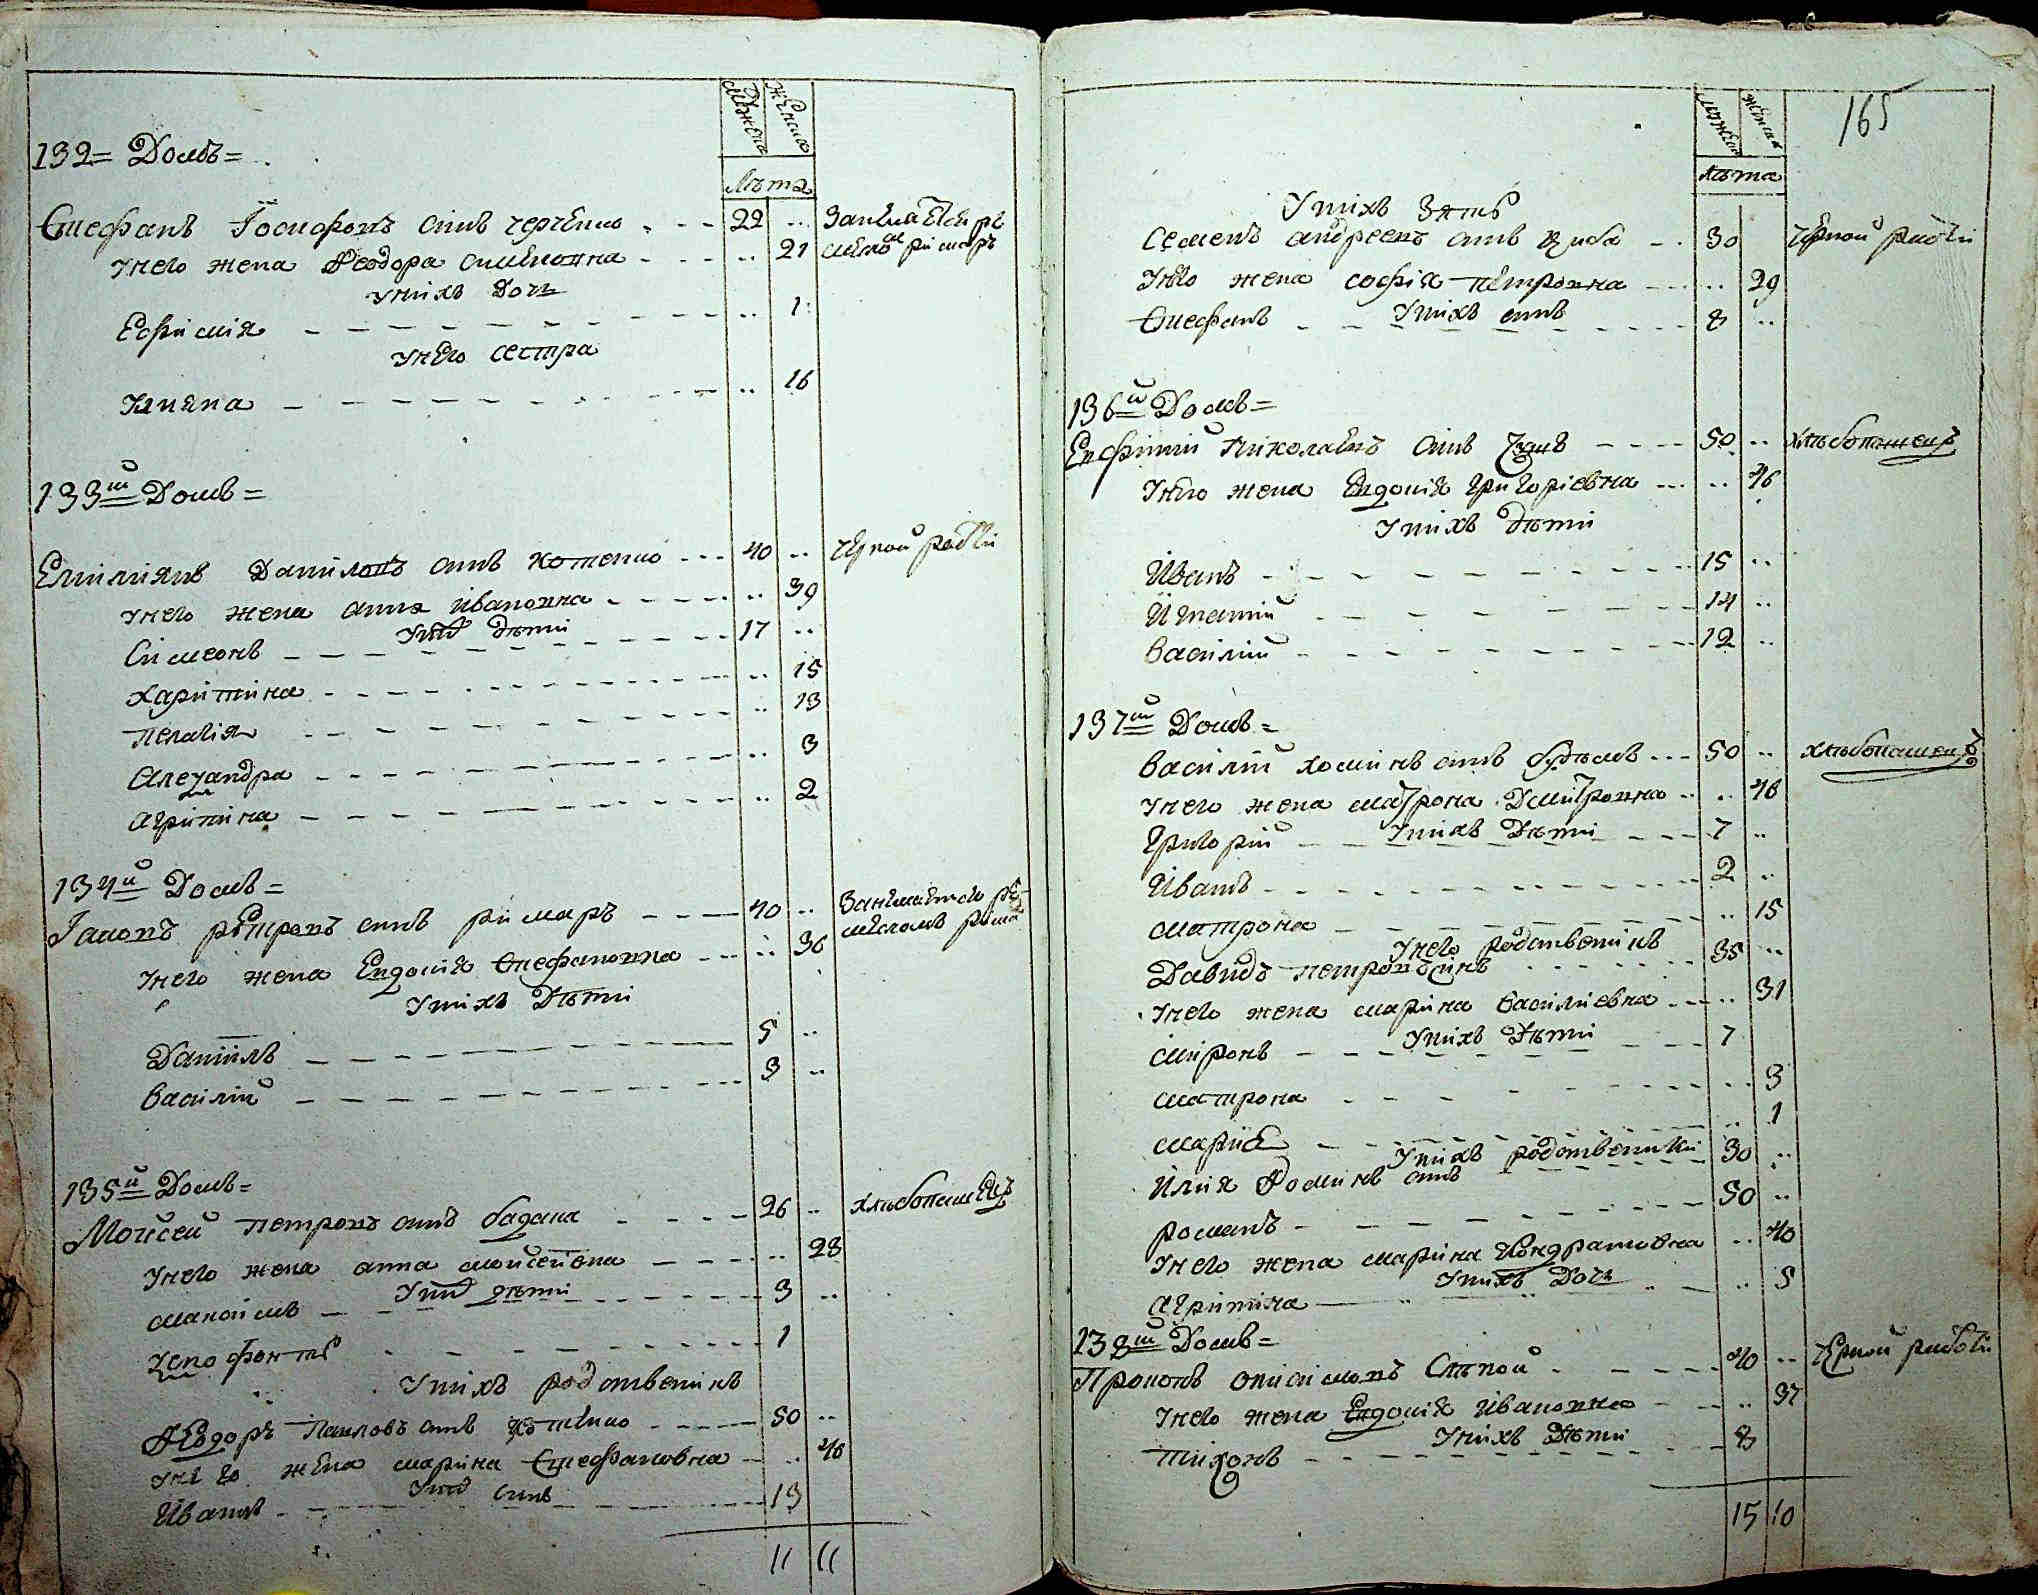 Мужеска
Женска
132= Домъ=
Лѣта
Стефанъ Іосифовъ сынъ 22
Унего жена Феодора 21
Унихъ дочь
Ефимія 1
Унего сестра
Улияна 16
133й Домъ=
Емилиянъ Даниловъ сынъ Котенко 40 черной работи
Унего жена анна Ивановна 39
Унихъ дѣти
Симеонъ 17
Харитина 15
Пелагія 13
Алеѯандра 3
Агрипина 2
134й Домъ=
Іаковъ Петровъ сынъ римаръ 40
Унего жена Евдокія Стефановна 36
Унихъ Дѣти
Даніилъ 5
Василій 3
135й Домъ=
Мойсей Петровъ сынъ бадака 26 хлѣбопашецъ
Унего жена анна мойсеївна 28
Унихъ дѣти
Максимъ 3
Ѯенофонтъ 1
Унихъ родственикъ
Феодоръ Павловъ сынъ 50
Унего жена марина Стефановна 46
Унихъ синъ
Иванъ 13
11 11
165
мужеска
женска
лѣта
Унихъ Зять
Семенъ андреевъ сынъ 30 черной работи
Унего жена софія петровна 29
Унихъ синъ
Стефанъ 8
136й Домъ=
Евфимій Николаевъ сынъ 50 хлѣбопашецъ
Унего жена Евдокія Григоріевна 46
Унихъ дѣти
Иванъ 15
Игнатий 14
Василий 12
137й Домъ=
Василий Хоминъ сынъ 50 хлѣбопашецъ
Унего жена матрона Дмитровна 46
Унихъ Дѣти
Григорій 7
Иванъ 2
матрона 15
Унего родственикъ
Давидъ Петровъ синъ 35
Унего жена марина Василиевна 31
Унихъ Дѣти
Миронъ 7
матрона 3
марія 1
Унихъ родственики
Илия Фоминъ синъ 30
романъ 50
Унего жена марина Кондратовна 40
Унихъ Дочь
Агрипина 5
138й Домъ=
Прокопъ Онисимовъ Слѣпой 40 черной работи
Унего жена Евдокія Ивановна 37
Унихъ Дѣти
тихонъ 8
15 10